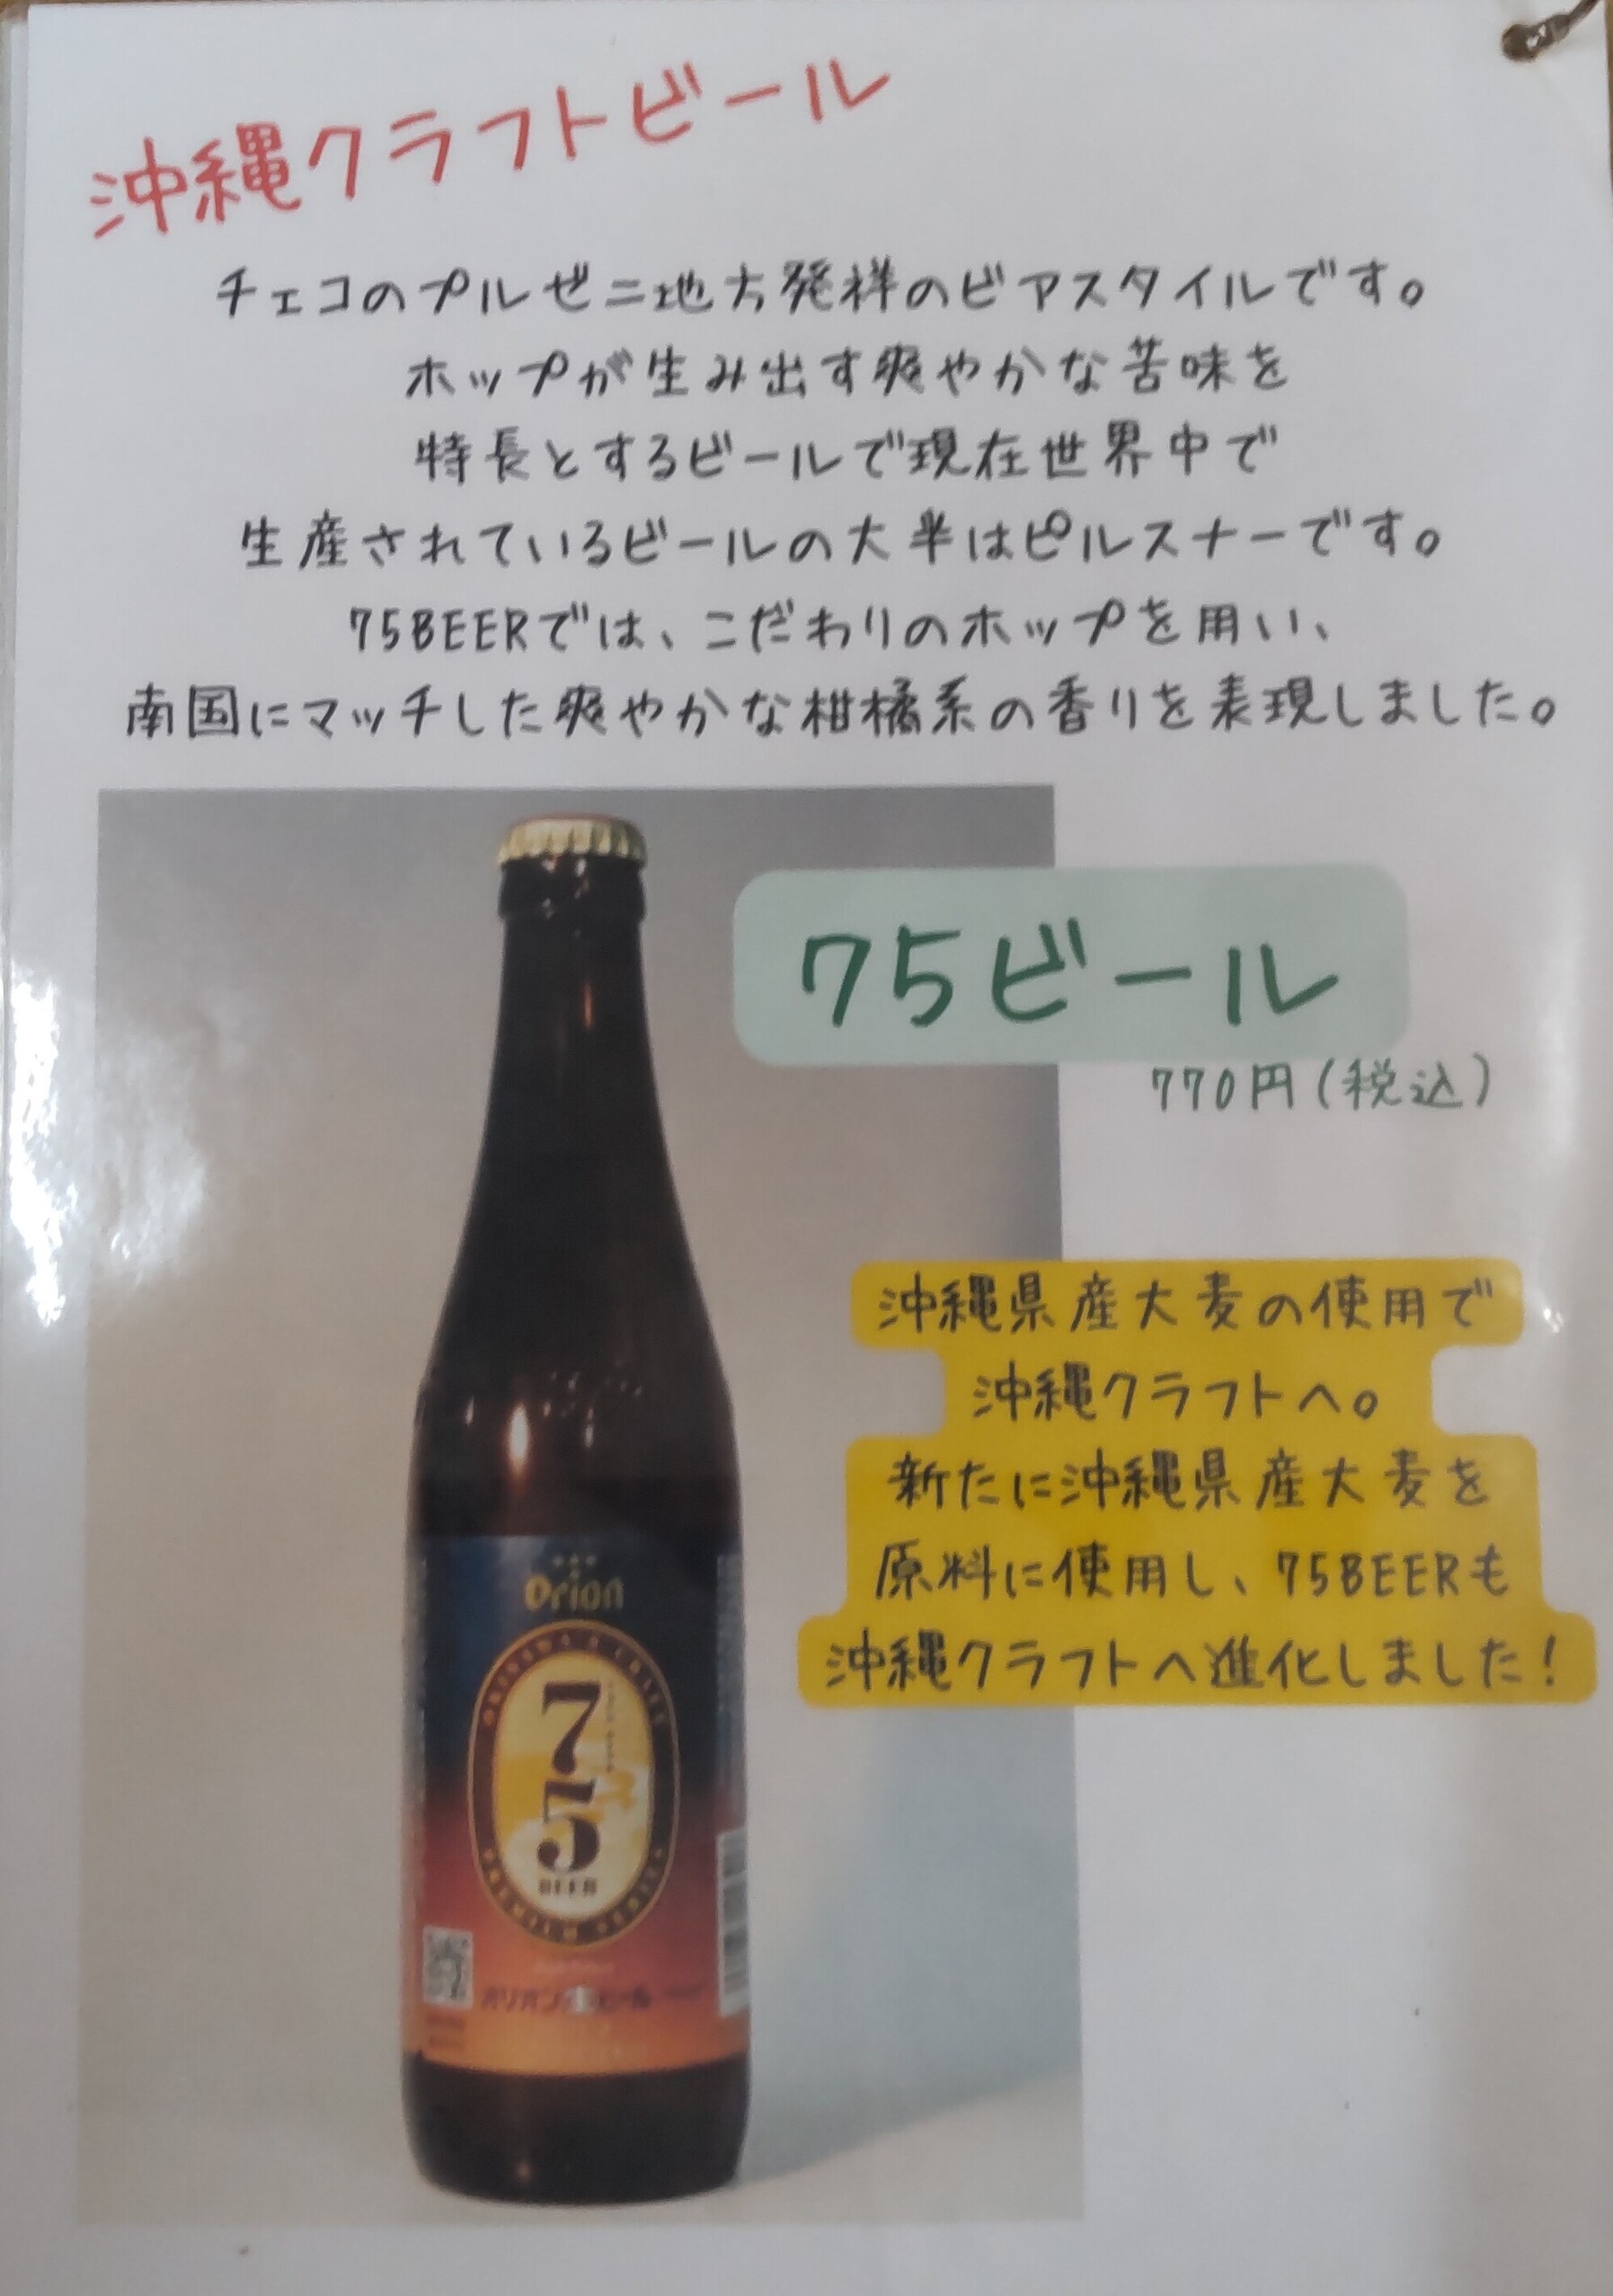 沖縄クラフトビール
チェコのプルゼニ地方発祥のビアスタイルです。
ホップが生み出す爽やかな苦味を
特長とするビールで現在世界中で
生産されているビールの大半はピルスナーです。
75BEERでは、こだわりのホップを用い、
南国にマッチした爽やかな柑橘系の香りを表現しました。
75ビール
770円(税込)
沖縄県産大麦の使用で
沖縄クラフトへ。
新たに沖縄県産大麦を
原料に使用し、75BEERも
沖縄クラフトへ進化しました!
Orion
75
BEER
オリオンビール